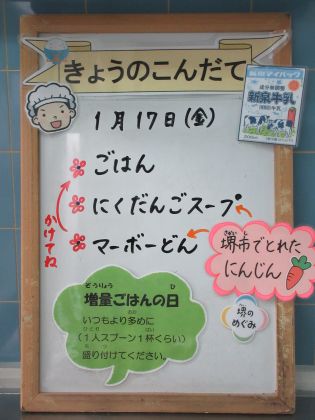 きょうのこんだて
1月17日(金)
ごはん
にくだんごスープ
マーボーどん
かけてね
新泉牛乳
堺市でとれた
にんじん
堺の
めぐみ
増量ごはんの日
いつもより多めに
(1人スプーン1杯くらい)
盛り付けてください。